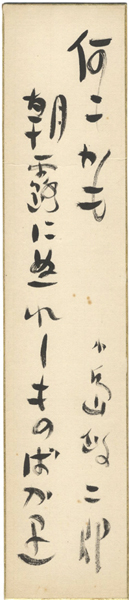 何もかも
朝露にぬれしものばかり
小島政二郎